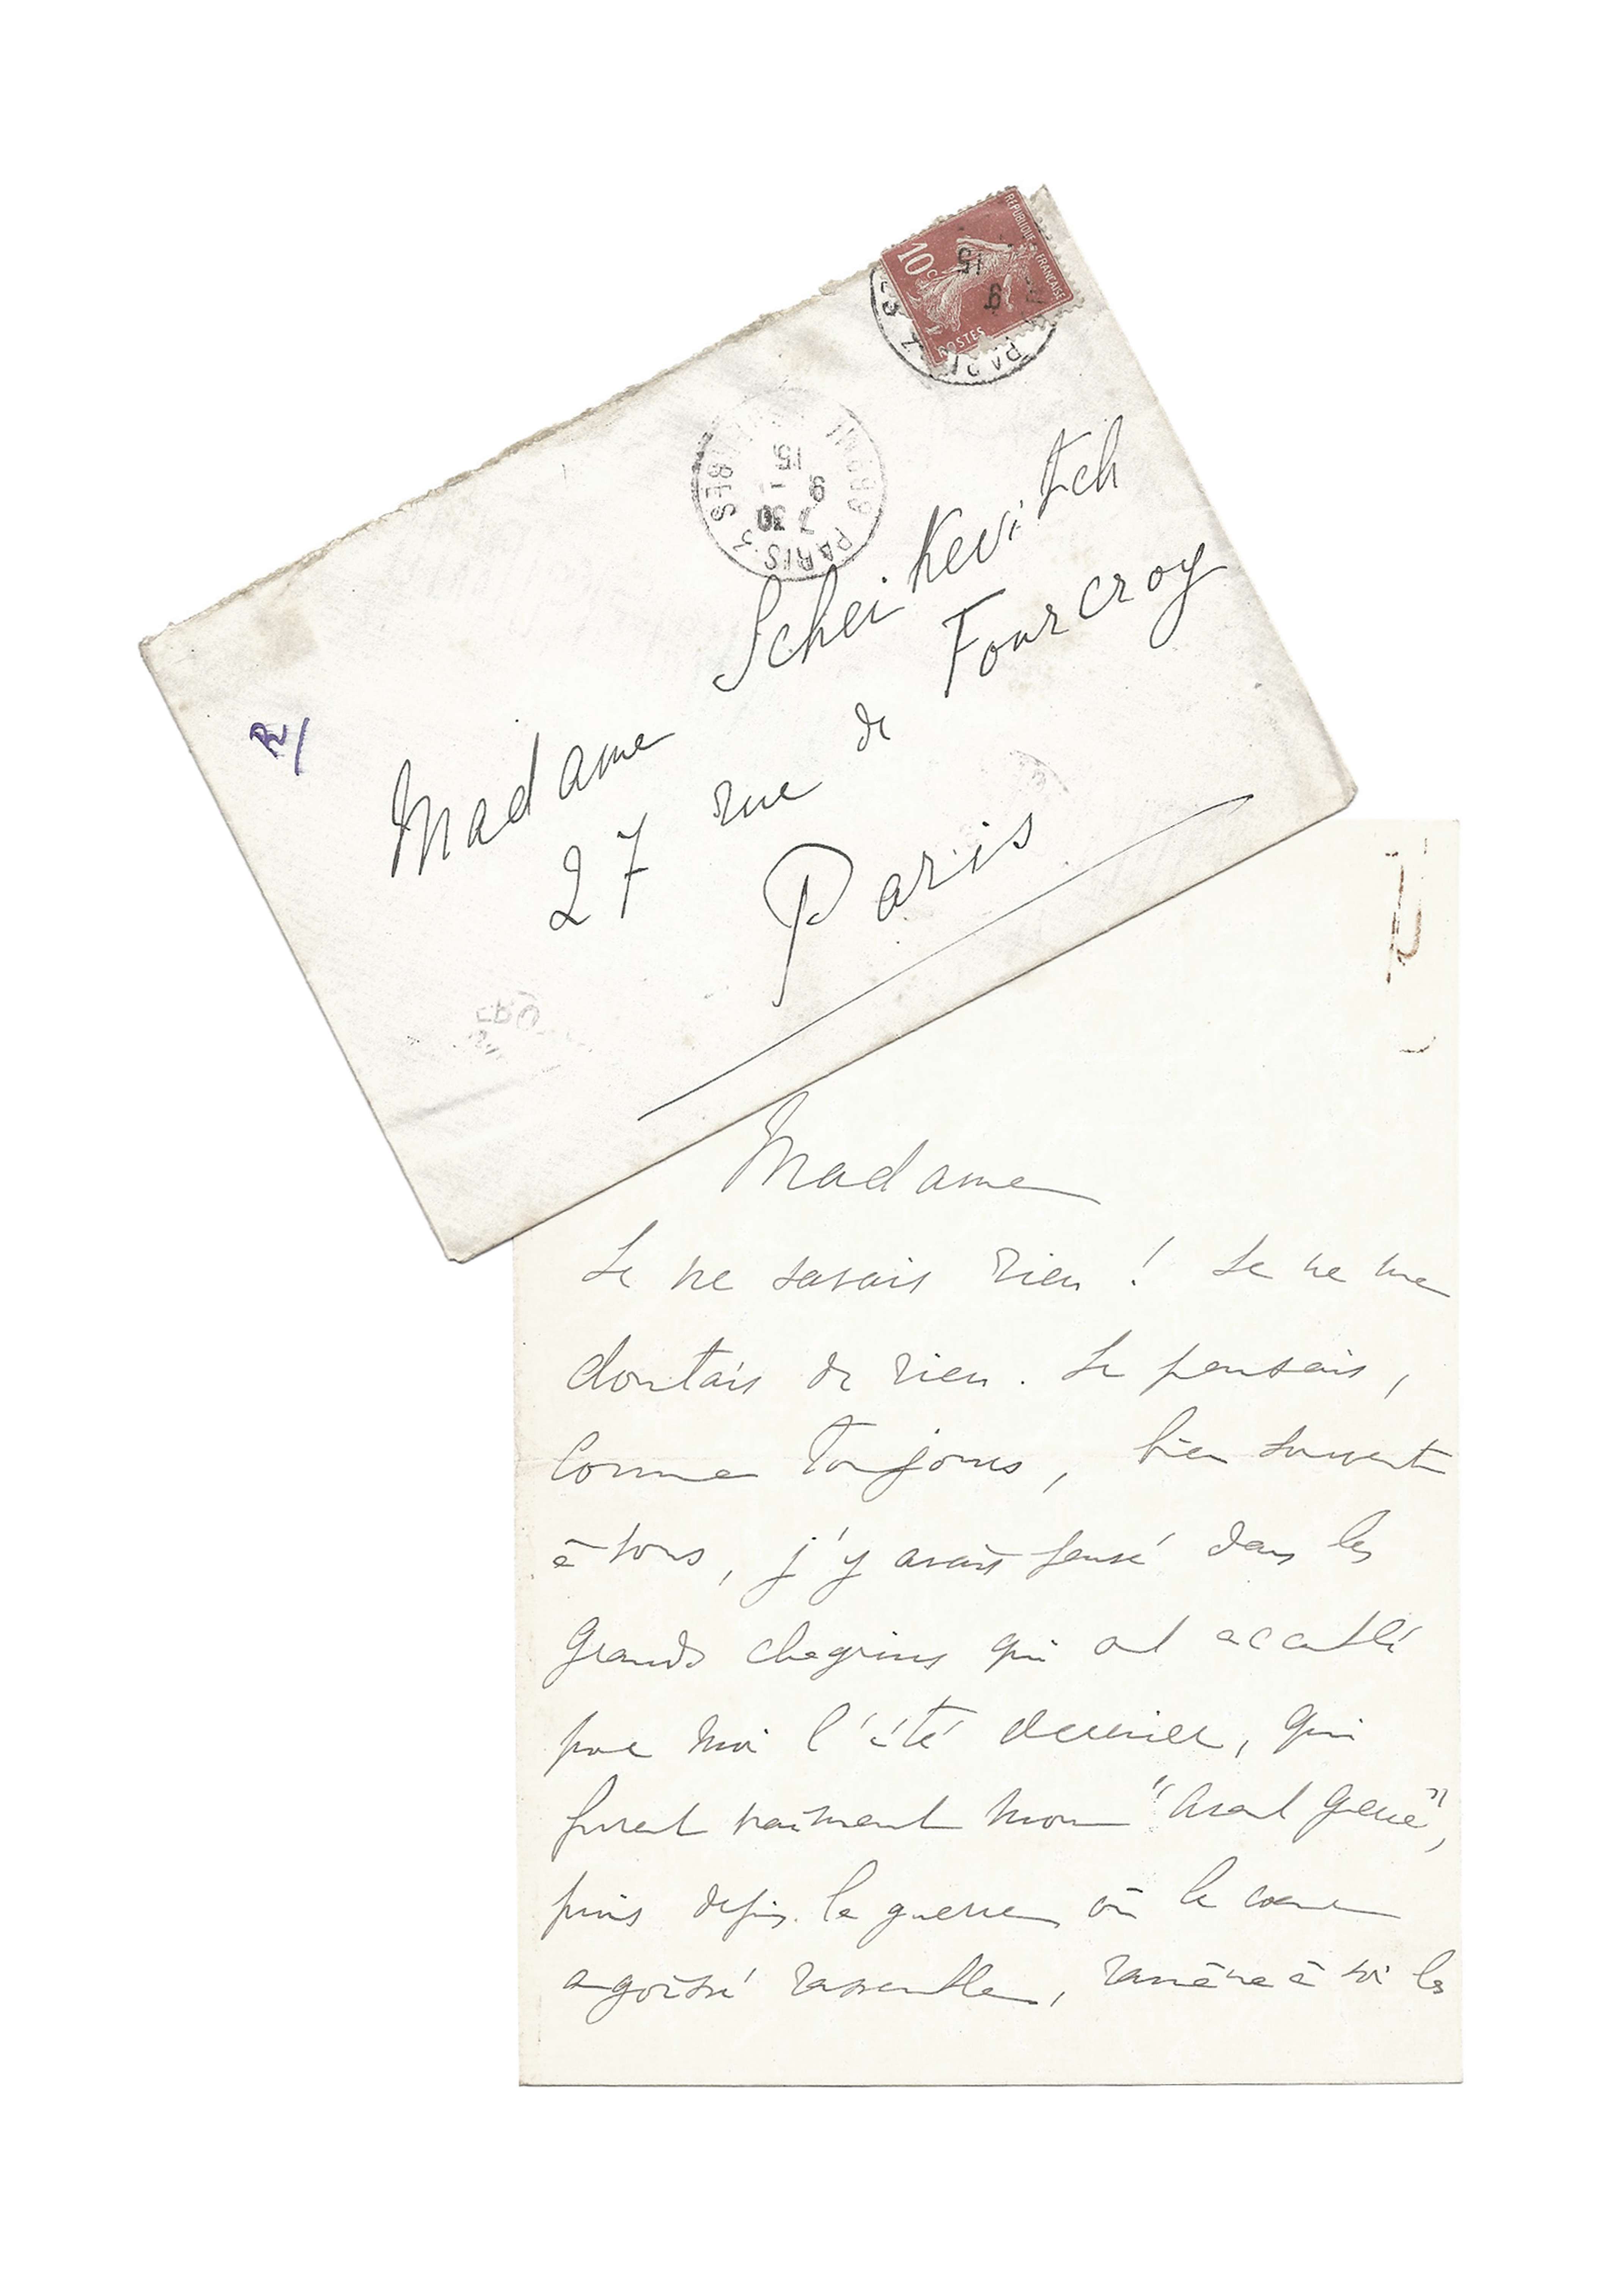 REPUBLIQUE FRANÇAISE
10c
POSTES
15
9
PARIS
15
9
7 30
PARIS 3
R/
Madame Scheikevitch
27 rue de Fourcroy
Paris
Madame
Je ne savais rien ! Je ne me
doutais de rien. Je pensais,
comme toujours, bien souvent
à vous, j'y avais pensé dans les
grands chagrins qui ont accablé
pour moi l'été dernier, qui
furent vraiment mon "Avant guerre",
puis depuis la guerre où le cœur
angoissé rassemble, ramène à soi les